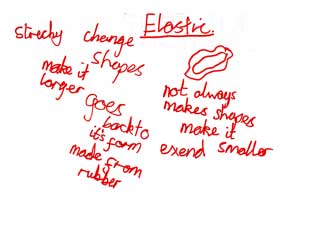 Elastic.
strechy change
shapes
make it
larger
goes
back to
it's form
made from
rubber
not always
makes shapes
make it
exend smaller